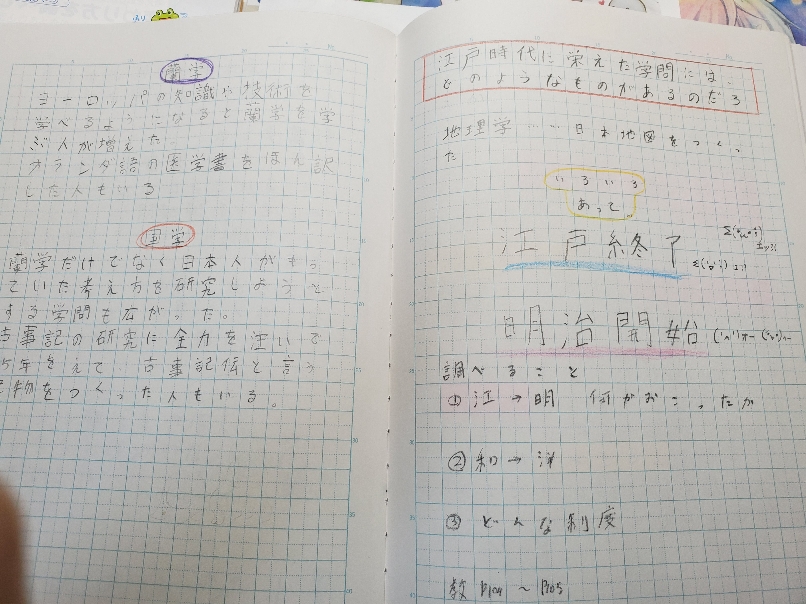 蘭学
ヨーロッパの知識や技術を
学べるようになると蘭学を学
ぶ人が増えた
オランダ語の医学書をほん訳
した人もいる
国学
蘭学だけでなく日本人がも
ていた考え方を研究しようと
する学問も広がった。
古事記の研究に全力を注いで
5年をえて 古事記伝と言う
物をつくった人もいる。
江戸時代に栄えた学問には、
どのようなものがあるのだろ
地理学……日本地図をつくっ
た
いろいろ
あって。
江戸終了
明治開始
調べること
① 江→明 何がおこったか
② 和→洋
③ どんな制度
教